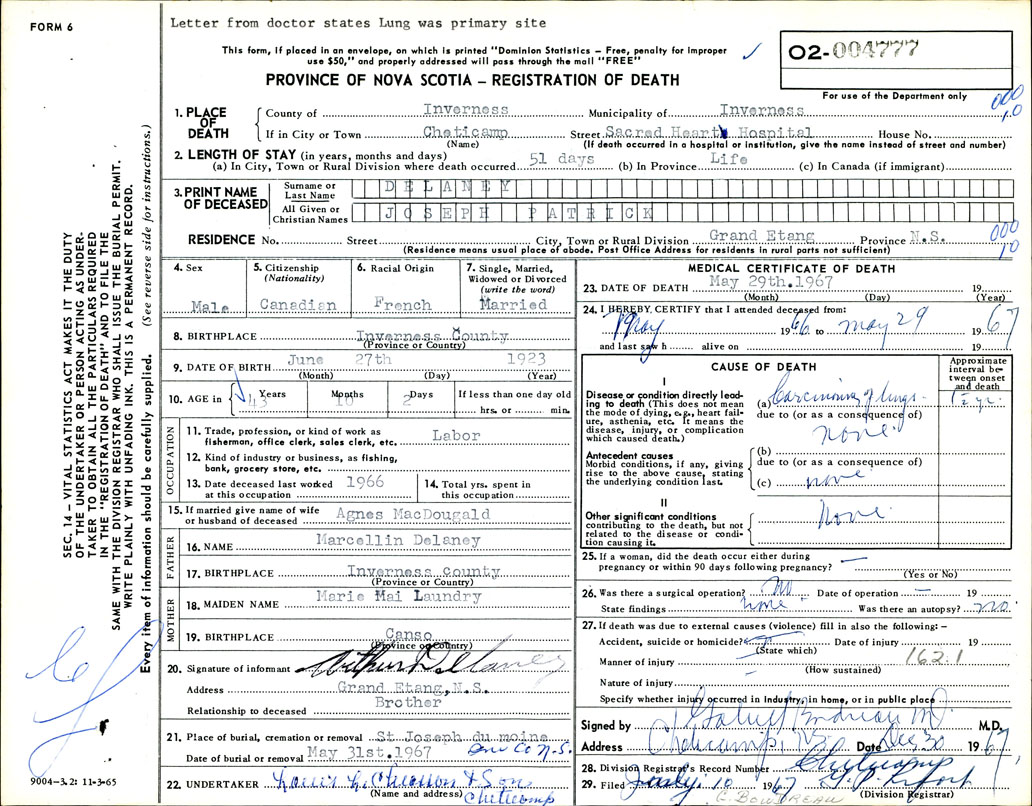 FORM 6
Letter from doctor states Lung was primary site
This form, if placed in an envelope, on which is printed "Dominion Statistics – Free, penalty for improper
use $50," and properly addressed will pass through the mail "FREE"
02-004777
PROVINCE OF NOVA SCOTIA – REGISTRATION OF DEATH
For use of the Department only
000
10
1. PLACE OF DEATH
County of Inverness Municipality of Inverness
If in City or Town Cheticamp Street Sacred Heart Hospital House No.
(Name) (If death occurred in a hospital or institution, give the name instead of street and number)
2. LENGTH OF STAY (in years, months and days)
(a) In City, Town or Rural Division where death occurred 51 days (b) In Province Life (c) In Canada (if immigrant)
3. PRINT NAME OF DECEASED
Surname or Last Name DELANEY
All Given or Christian Names JOSEPH PATRICK
RESIDENCE No. Street City, Town or Rural Division Grand Etang Province N.S.
(Residence means usual place of abode. Post Office Address for residents in rural parts not sufficient)
000
10
4. Sex Male
5. Citizenship (Nationality) Canadian
6. Racial Origin French
7. Single, Married, Widowed or Divorced (write the word) Married
8. BIRTHPLACE Inverness County
(Province or Country)
9. DATE OF BIRTH June 27th 1923
(Month) (Day) (Year)
10. AGE in 43 Years 10 Months 2 Days If less than one day old
hrs. or min.
OCCUPATION
11. Trade, profession, or kind of work as
fisherman, office clerk, sales clerk, etc. Labor
12. Kind of industry or business, as fishing,
bank, grocery store, etc.
13. Date deceased last worked at this occupation 1966
14. Total yrs. spent in this occupation
15. If married give name of wife
or husband of deceased Agnes MacDougald
FATHER
16. NAME Marcellin Delaney
17. BIRTHPLACE Inverness county
(Province or Country)
MOTHER
18. MAIDEN NAME Marie Mai Laundry
19. BIRTHPLACE Canso
(Province or Country)
20. Signature of informant Arthur Delaney
Address Grand Etang, N.S.
Relationship to deceased Brother
21. Place of burial, cremation or removal St Joseph du moine
Inv Co N.S.
Date of burial or removal May 31st.1967
22. UNDERTAKER Louis L. Chiasson & Son
(Name and address) Cheticamp
MEDICAL CERTIFICATE OF DEATH
23. DATE OF DEATH May 29th.1967 19
(Month) (Day) (Year)
24. I HEREBY CERTIFY that I attended deceased from:
May 1966 to may 29 1967
and last saw h alive on 19
CAUSE OF DEATH
Approximate interval between onset and death
I
Disease or condition directly leading to death (This does not mean
the mode of dying, e.g., heart failure, asthenia, etc. It means the
disease, injury, or complication
which caused death.)
(a) Carcinoma of lungs 1 yr.
due to (or as a consequence of)
none
Antecedent causes
Morbid conditions, if any, giving
rise to the above cause, stating
the underlying condition last.
(b)
due to (or as a consequence of)
(c) none
II
Other significant conditions
contributing to the death, but not
related to the disease or condition causing it.
None
25. If a woman, did the death occur either during
pregnancy or within 90 days following pregnancy?
(Yes or No)
26. Was there a surgical operation? No Date of operation 19
State findings none Was there an autopsy? no.
27. If death was due to external causes (violence) fill in also the following: –
Accident, suicide or homicide? Date of injury 19
(State which)
Manner of injury 162.1
(How sustained)
Nature of injury
Specify whether injury occurred in industry, in home, or in public place
Signed by M.D.
Address Cheticamp, N.S. Date 30 1967
28. Division Registrar's Record Number Cheticamp
29. Filed July 10 1967
(Division Registrar)
9004-3.2: 11-3-65
SEC. 14 – VITAL STATISTICS ACT MAKES IT THE DUTY
OF THE UNDERTAKER OR PERSON ACTING AS UNDER-
TAKER TO OBTAIN ALL THE PARTICULARS REQUIRED
IN THE "REGISTRATION OF DEATH" AND TO FILE THE
SAME WITH THE DIVISION REGISTRAR WHO SHALL ISSUE THE BURIAL PERMIT.
WRITE PLAINLY WITH UNFADING INK. THIS IS A PERMANENT RECORD.
Every item of information should be carefully supplied. (See reverse side for instructions.)